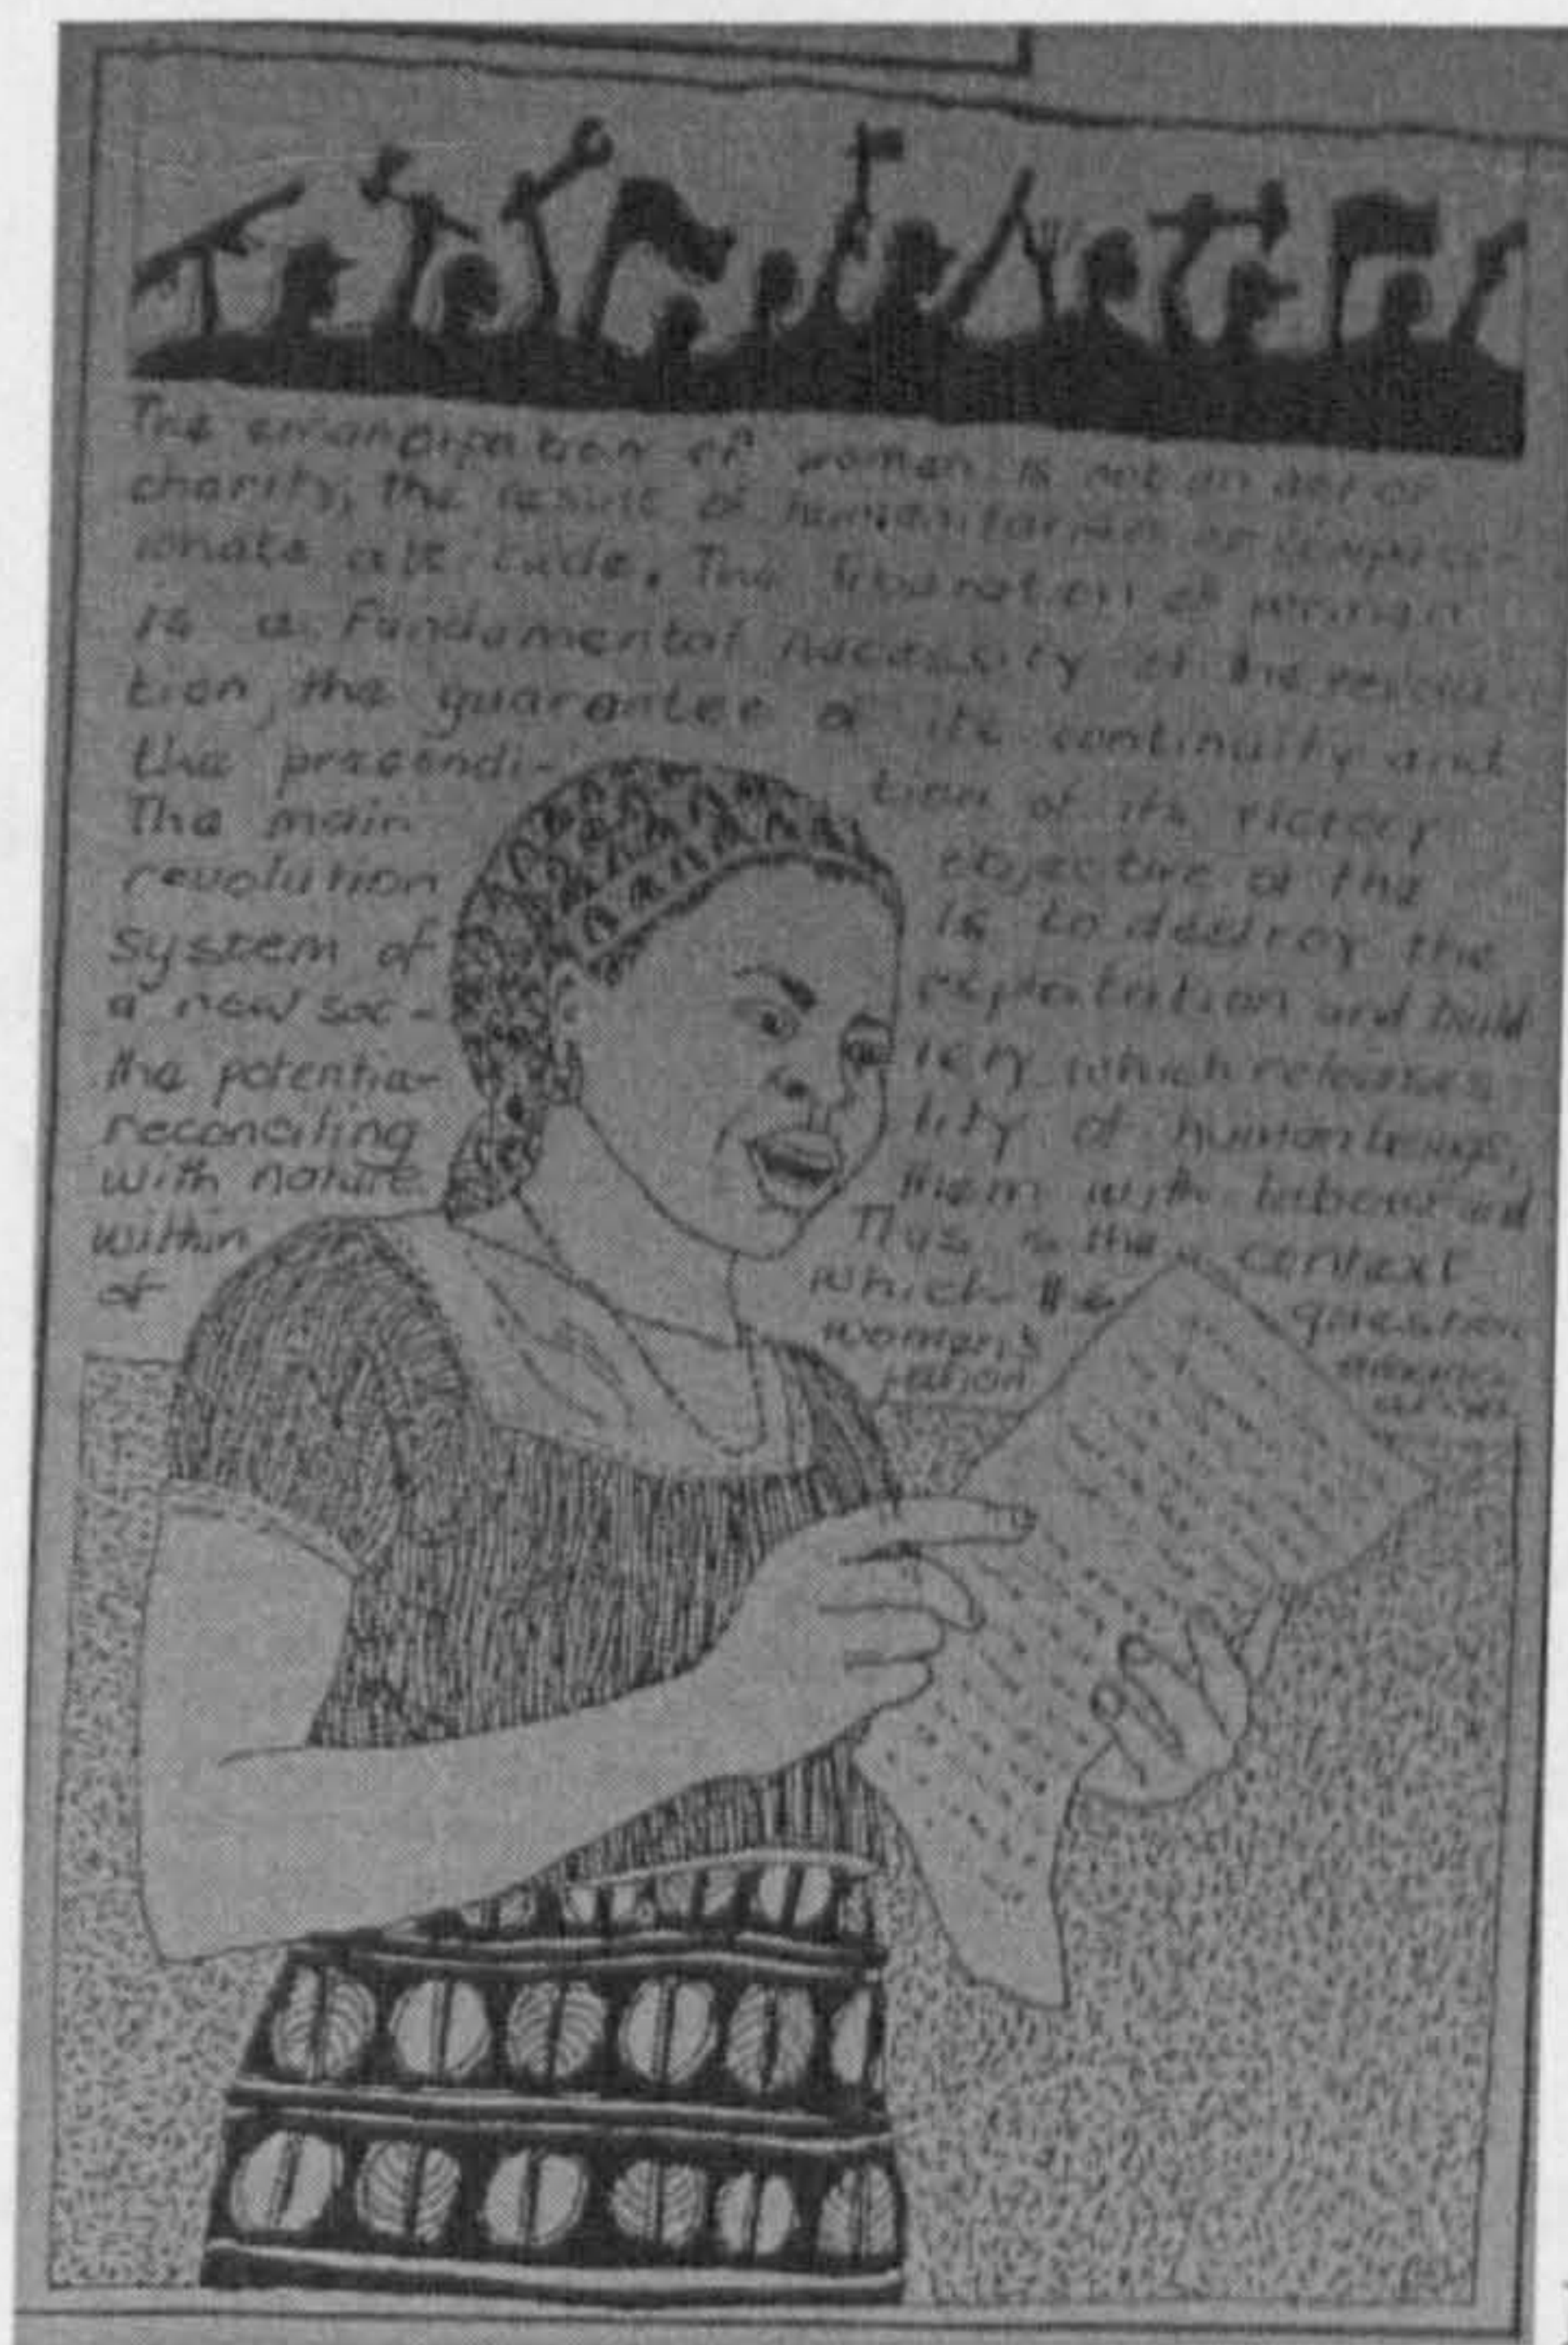 The emancipation of women is not an act of
charity, the result of humanitarian or compass-
ionate attitude. The liberation of women
is a fundamental necessity of the revolu
tion, the guarantee of its continuity and
the precondi- tion of its victory
The main objective of the
revolution is to destroy the
system of exploitation and build
a new soc- iety which releases
the potentia- lity of human beings,
reconciling them with labour and
with nature. This is the context
within which the question
of women's emanci-
pation arises